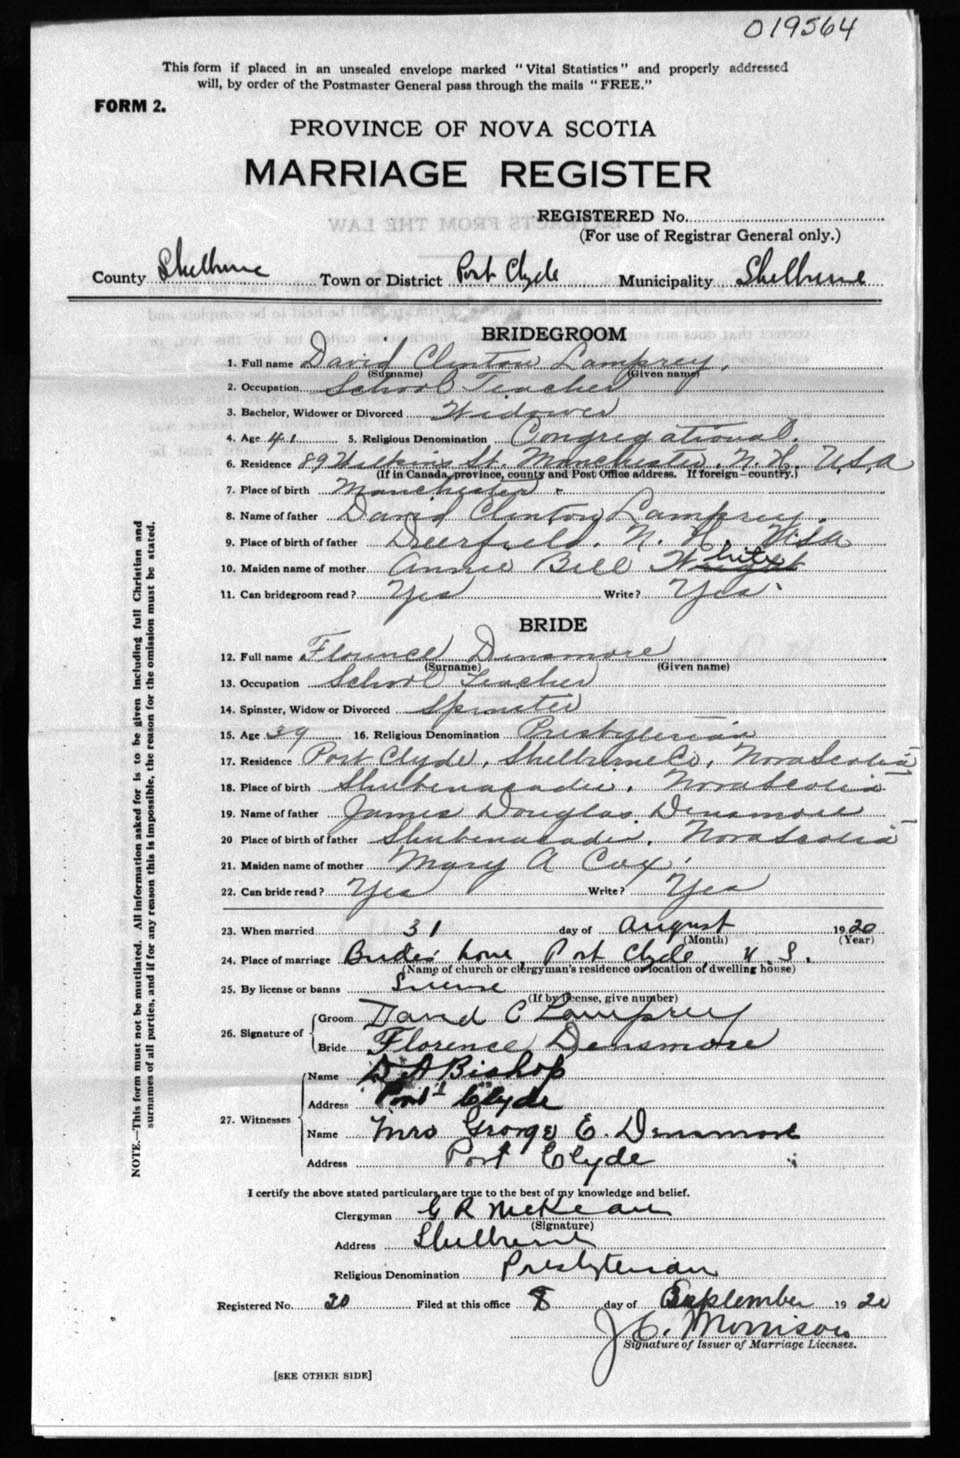 019564
This form if placed in an unsealed envelope marked "Vital Statistics" and properly addressed
will, by order of the Postmaster General pass through the mails "FREE."
FORM 2.
PROVINCE OF NOVA SCOTIA
MARRIAGE REGISTER
REGISTERED No.
(For use of Registrar General only.)
County Shelburne Town or District Port Clyde Municipality Shelburne
BRIDEGROOM
1. Full name David Clinton Lamprey.
(Surname) (Given name)
2. Occupation School Teacher
3. Bachelor, Widower or Divorced Widower
4. Age 41 5. Religious Denomination Congregational.
6. Residence 89 Wilkins St. Manchester, N.H. U.S.A
(If in Canada, province, county and Post Office address. If foreign—country.)
7. Place of birth Manchester.
8. Name of father David Clinton Lamprey.
9. Place of birth of father Deerfield, N. H. U.S.A
10. Maiden name of mother Annie Bell White
11. Can bridegroom read? Yes Write? Yes.
BRIDE
12. Full name Florence Densmore
(Surname) (Given name)
13. Occupation School Teacher
14. Spinster, Widow or Divorced Spinster
15. Age 39 16. Religious Denomination Presbyterian
17. Residence Port Clyde, Shelburne Co, Nova Scotia
18. Place of birth Shubenacadie, Nova Scotia
19. Name of father James Douglas Densmore
20 Place of birth of father Shubenacadie, Nova Scotia
21. Maiden name of mother Mary A Cox.
22. Can bride read? Yes Write? Yes
23. When married 31 day of August 1920
(Month) (Year)
24. Place of marriage Brides home, Port Clyde, N. S.
(Name of church or clergyman's residence or location of dwelling house)
25. By license or banns License
(If by license, give number)
26. Signature of
Groom David C Lamprey
Bride Florence Densmore
27. Witnesses
Name D A Bishop
Address Port Clyde
Name Mrs George E. Densmore
Address Port Clyde
I certify the above stated particulars are true to the best of my knowledge and belief.
Clergyman G R McKean
(Signature)
Address Shelburne
Religious Denomination Presbyterian
Registered No. 20 Filed at this office 8 day of September 1920
J C. Morrison
Signature of Issuer of Marriage Licenses.
[SEE OTHER SIDE]
NOTE.—This form must not be mutilated. All information asked for is to be given including full Christian and
surnames of all parties, and if for any reason this is impossible, the reason for the omission must be stated.